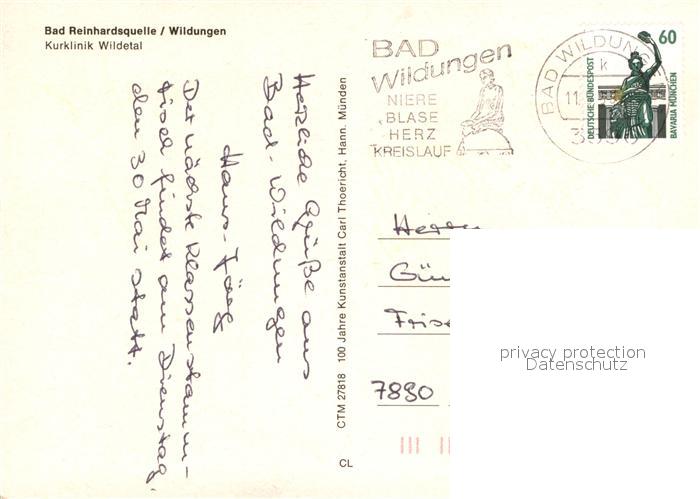 Bad Reinhardsquelle / Wildungen
Kurklinik Wildetal
Herzliche Grüße aus
Bad-Wildungen
Hans-Jörg
Der nächste Klassenstamm-
tisch findet am Dienstag,
den 30 Mai statt.
CTM 27818 100 Jahre Kunstanstalt Carl Thoericht, Hann. Münden
CL
BAD
Wildungen
NIERE
BLASE
HERZ
KREISLAUF
BAD WILDUN
k
11
60
DEUTSCHE BUNDESPOST
BAVARIA MÜNCHEN
Herrn
Gün
Frise
7890
privacy protection
Datenschutz